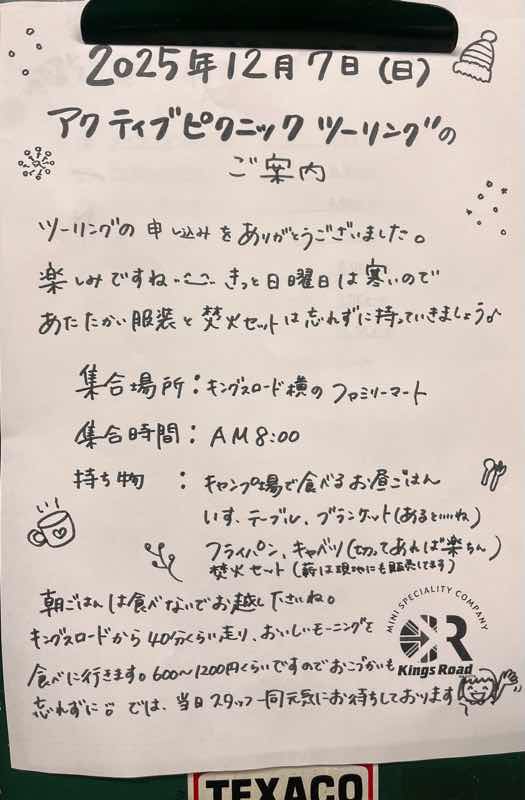 2025年12月7日(日)
アクティブピクニックツーリングの
ご案内
ツーリングの申し込みをありがとうございました。
楽しみですね きっと日曜日は寒いので
あたたかい服装と焚火セットは忘れずに持っていきましょう♪
集合場所：キングスロード横のファミリーマート
集合時間：AM8:00
持ち物：キャンプ場で食べるお昼ごはん
いす、テーブル、ブランケット(あるといいね)
フライパン、キャベツ(切ってあれば楽ちん)
焚火セット(薪は現地にも販売してます)
朝ごはんは食べないでお越しくださいね。
キングスロードから40分くらい走り、おいしいモーニングを
食べに行きます。600〜1200円くらいですのでおこづかいも
忘れずに。では、当日スタッフ一同元気にお待ちしております
MINI SPECIALITY COMPANY
KR
Kings Road
TEXACO